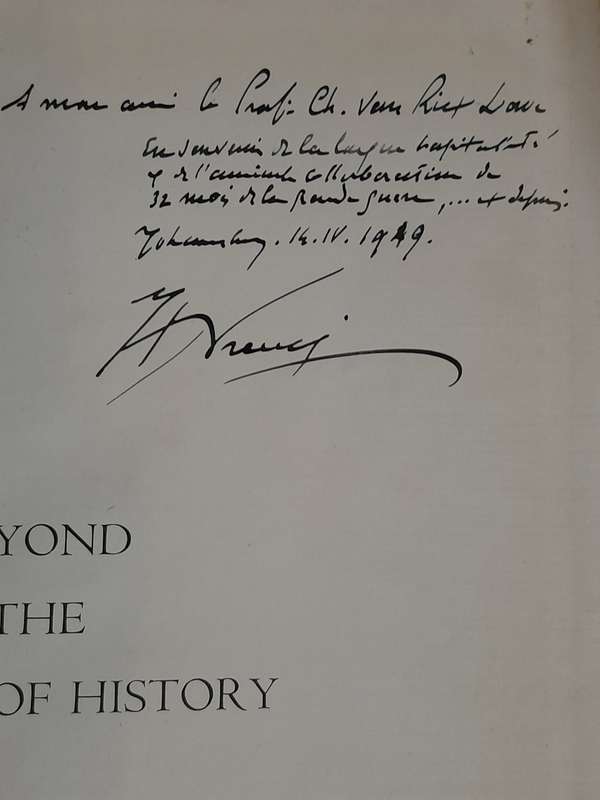 A mon ami le Prof. Ch. Van Riet Lowe
En souvenir de la large hospitalité
& de l'amicale collaboration de
32 mois de la grande guerre, ... et depuis.
Johannesburg. 14.IV. 1949.
H Breuil
YOND
THE
OF HISTORY